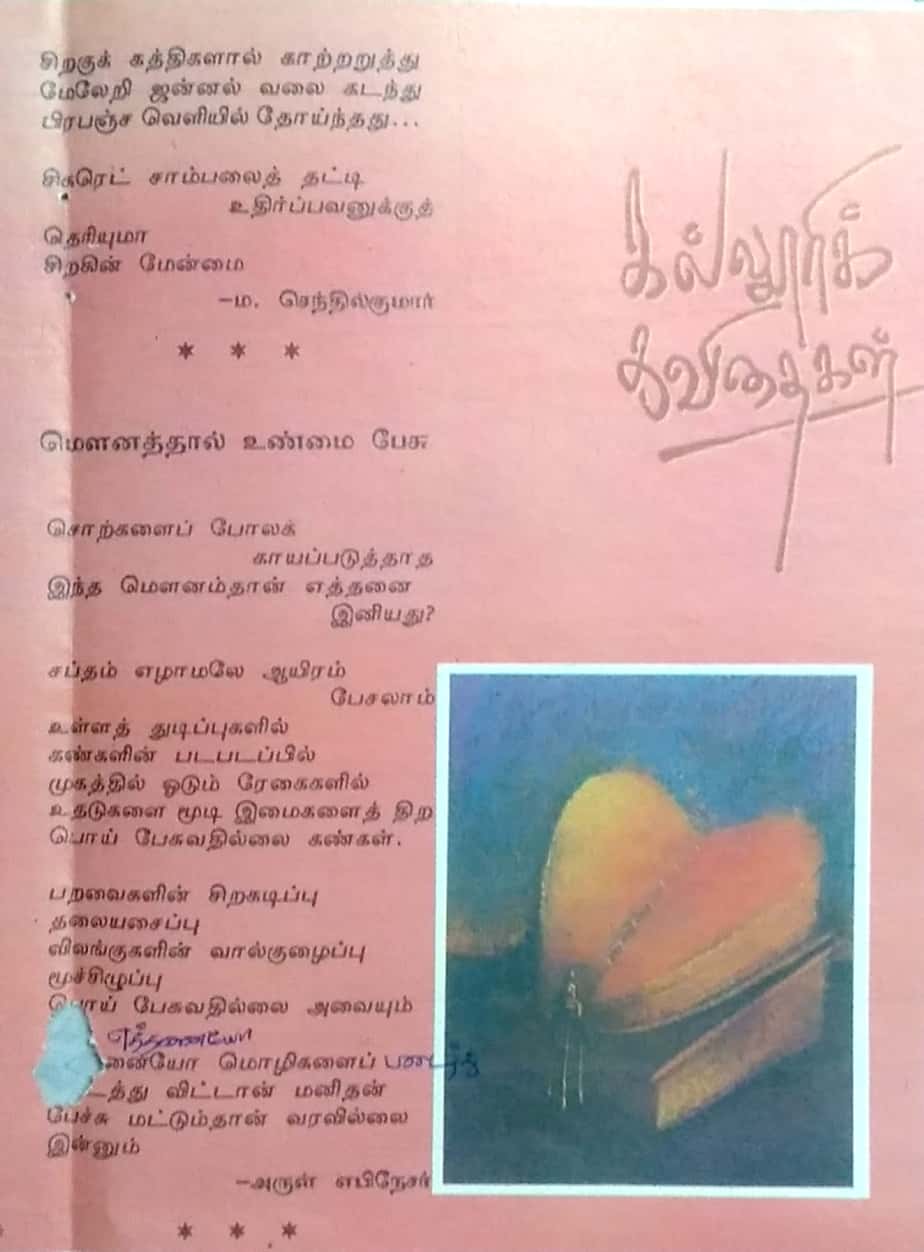 சிறகுக் கத்திகளால் காற்றறுத்து
மேலேறி ஜன்னல் வலை கடந்து
பிரபஞ்ச வெளியில் தோய்ந்தது...
சிகரெட் சாம்பலைத் தட்டி
உதிர்ப்பவனுக்குத்
தெரியுமா
சிறகின் மேன்மை
-ம. செந்தில்குமார்
* * *
கல்லூரிக்
கவிதைகள்
மௌனத்தால் உண்மை பேசு
சொற்களைப் போலக்
காயப்படுத்தாத
இந்த மௌனம்தான் எத்தனை
இனியது?
சப்தம் எழாமலே ஆயிரம்
பேசலாம்
உள்ளத் துடிப்புகளில்
கண்களின் படபடப்பில்
முகத்தில் ஓடும் ரேகைகளில்
உதடுகளை மூடி இமைகளைத் திற
பொய் பேசுவதில்லை கண்கள்.
பறவைகளின் சிறகடிப்பு
தலையசைப்பு
விலங்குகளின் வால்குழைப்பு
மூச்சிழுப்பு
பொய் பேசுவதில்லை அவையும்
எத்தனையோ
னையோ மொழிகளைப்
த்து விட்டான் மனிதன்
பேச்சு மட்டும்தான் வரவில்லை
இன்னும்
-அருள் எபிநேசர்
* * *